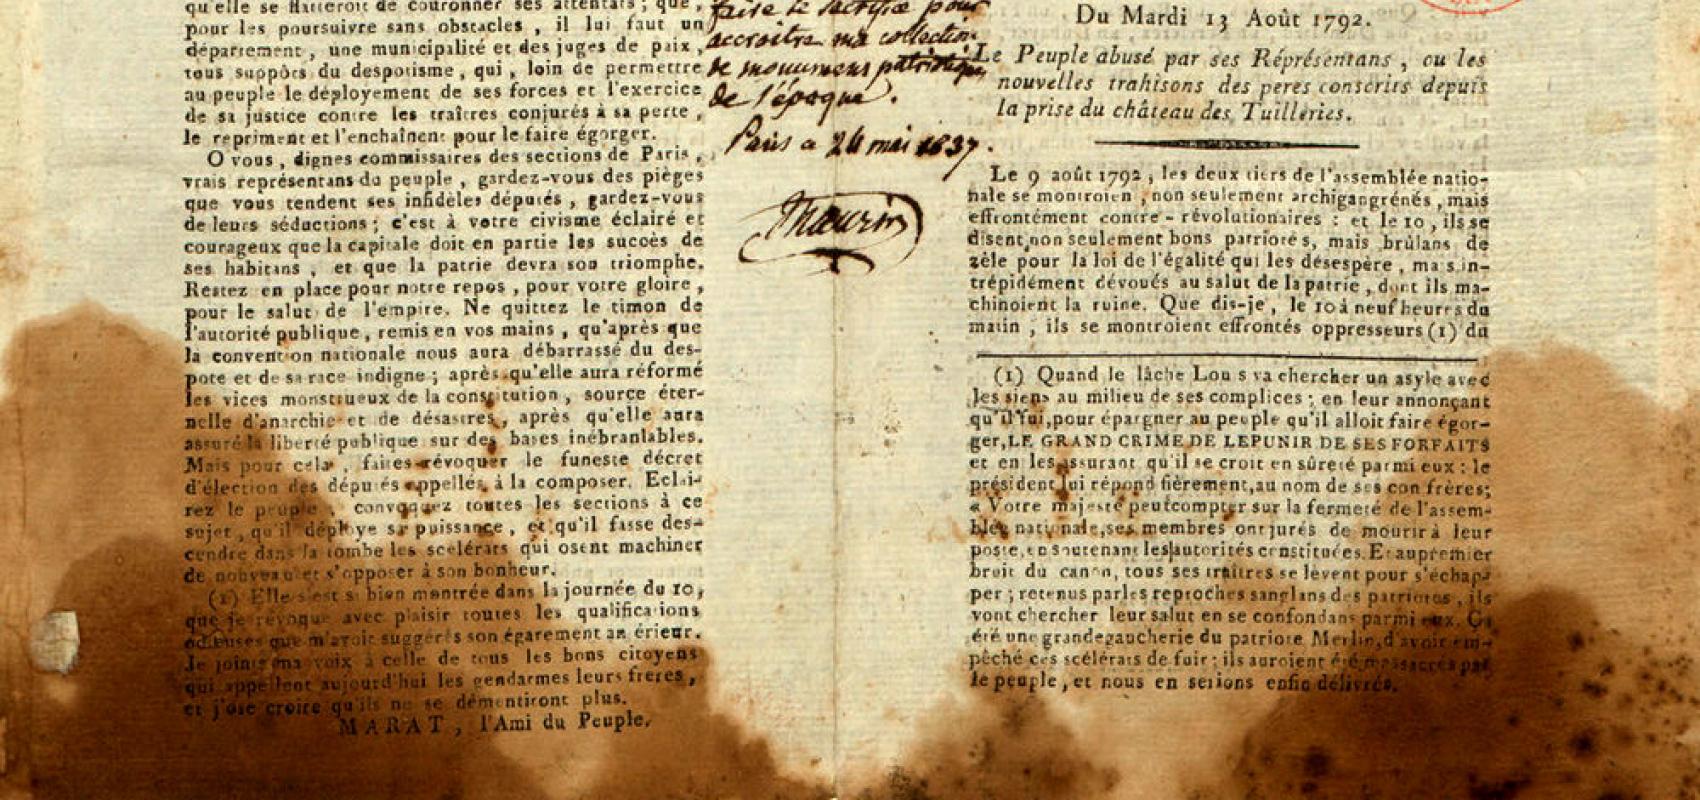 qu'elle se flatteroit de couronner ses attentats ; que,
pour les poursuivre sans obstacles , il lui faut un
département , une municipalité et des juges de paix ,
tous suppôts du despotisme , qui , loin de permettre
au peuple le déployement de ses forces et l'exercice
de sa justice contre les traîtres conjurés à sa perte ,
le repriment et l'enchaînent pour le faire égorger.
O vous , dignes commissaires des sections de Paris ,
vrais représentans du peuple , gardez-vous des pièges
que vous tendent ses infidèles députés , gardez-vous
de leurs séductions ; c'est à votre civisme éclairé et
courageux que la capitale doit en partie les succès de
ses habitans , et que la patrie devra son triomphe.
Restez en place pour notre repos , pour votre gloire ,
pour le salut de l'empire. Ne quittez le timon de
l'autorité publique , remis en vos mains , qu'après que
la convention nationale nous aura débarrassé du des-
pote et de sa race indigne ; après qu'elle aura réformé
les vices monstrueux de la constitution , source éter-
nelle d'anarchie et de désastres , après qu'elle aura
assuré la liberté publique sur des bases inébranlables.
Mais pour cela , faites révoquer le funeste décret
d'élection des députés appellés à la composer. Eclai-
rez le peuple , convoquez toutes les sections à ce
sujet , qu'il déploye sa puissance , et qu'il fasse des-
cendre dans la tombe les scelérats qui osent machiner
de nouveau et s'opposer à son bonheur.
(1) Elle s'est si bien montrée dans la journée du 10,
que je révoque avec plaisir toutes les qualifications
odieuses que m'avoit suggérés son égarement antérieur.
Je joins ma voix à celle de tous les bons citoyens
qui appellent aujourd'hui les gendarmes leurs freres ,
et j'ose croire qu'ils ne se démentiront plus.
MARAT , l'Ami du Peuple.
faire le sacrifice pour
accroitre ma collection
de monumens patriotiques
de l'époque.
Paris a 24 mai 1837.
Maurin
Du Mardi 13 Août 1792.
Le Peuple abusé par ses Réprésentans , ou les
nouvelles trahisons des peres conscrits depuis
la prise du château des Tuilleries.
Le 9 août 1792 , les deux tiers de l'assemblée natio-
nale se montroien , non seulement archigangrénés , mais
effrontément contre-révolutionaires : et le 10 , ils se
disent non seulement bons patriotes, mais brûlans de
zèle pour la loi de l'égalité qui les désespère , mas in-
trépidément dévoués au salut de la patrie , dont ils ma-
chinoient la ruine. Que dis-je , le 10 à neuf heures du
matin , ils se montroient effrontés oppresseurs (1) du
(1) Quand le lâche Lou s va chercher un asyle avec
les siens au milieu de ses complices ; en leur annonçant
qu'il fui, pour épargner au peuple qu'il alloit faire égor-
ger, LE GRAND CRIME DE LE PUNIR DE SES FORFAITS
et en les assurant qu'il se croit en sûreté parmi eux : le
président lui répond fièrement, au nom de ses con frères;
« Votre majesté peut compter sur la fermeté de l'assem-
blée nationale, ses membres ont jurés de mourir à leur
poste, en soutenant les autorités constituées. Et au premier
bruit du canon, tous ses traîtres se lèvent pour s'échap-
per ; retenus par les reproches sanglans des patriotes , ils
vont chercher leur salut en se confondans parmi eux. Ç'a
été une grande gaucherie du patriote Merlin, d'avoir em-
pêché ces scélérats de fuir ; ils auroient été massacrés par
le peuple , et nous en serions enfin délivrés.